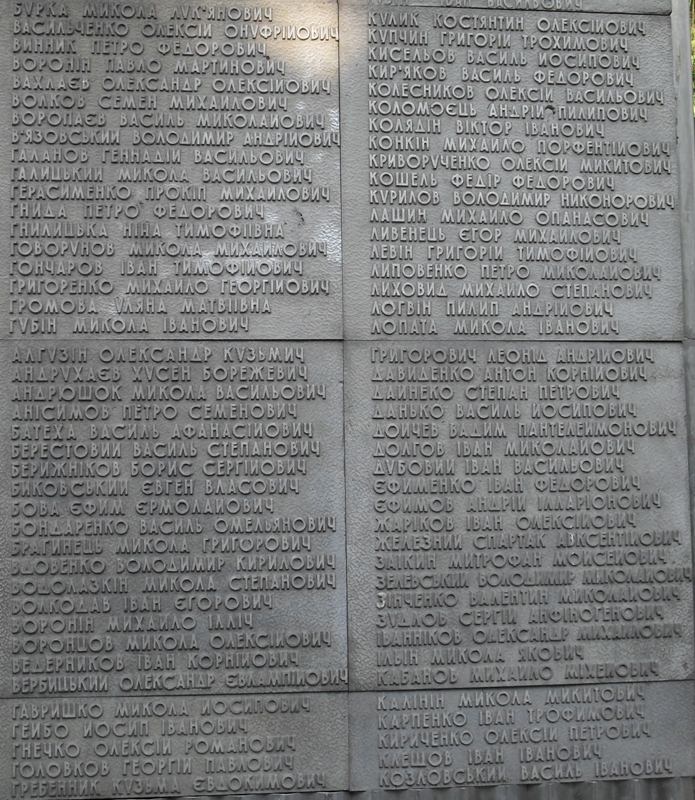 БУРКА МИКОЛА ЛУК'ЯНОВИЧ
ВАСИЛЬЧЕНКО ОЛЕКСІЙ ОНУФРІЙОВИЧ
ВИННИК ПЕТРО ФЕДОРОВИЧ
ВОРОНІН ПАВЛО МАРТИНОВИЧ
ВАХЛАЄВ ОЛЕКСАНДР ОЛЕКСІЙОВИЧ
ВОЛКОВ СЕМЕН МИХАЙЛОВИЧ
ВОРОПАЄВ ВАСИЛЬ МИКОЛАЙОВИЧ
В'ЯЗОВСЬКИЙ ВОЛОДИМИР АНДРІЙОВИЧ
ГАЛАНОВ ГЕННАДІЙ ВАСИЛЬОВИЧ
ГАЛИЦЬКИЙ МИКОЛА ВАСИЛЬОВИЧ
ГЕРАСИМЕНКО ПРОКІП МИХАЙЛОВИЧ
ГНИДА ПЕТРО ФЕДОРОВИЧ
ГНИЛИЦЬКА НІНА ТИМОФІЇВНА
ГОВОРУНОВ МИКОЛА МИХАЙЛОВИЧ
ГОНЧАРОВ ІВАН ТИМОФІЙОВИЧ
ГРИГОРЕНКО МИХАЙЛО ГЕОРГІЙОВИЧ
ГРОМОВА УЛЯНА МАТВІЇВНА
ГУБІН МИКОЛА ІВАНОВИЧ
АЛГУЗІН ОЛЕКСАНДР КУЗЬМИЧ
АНДРУХАЄВ ХУСЕН БОРЕЖЕВИЧ
АНДРЮШОК МИКОЛА ВАСИЛЬОВИЧ
АНІСИМОВ ПЕТРО СЕМЕНОВИЧ
БАТЕХА ВАСИЛЬ АФАНАСІЙОВИЧ
БЕРЕСТОВИЙ ВАСИЛЬ СТЕПАНОВИЧ
БЕРИЖНІКОВ БОРИС СЕРГІЙОВИЧ
БИКОВСЬКИЙ ЄВГЕН ВЛАСОВИЧ
БОВА ЄФИМ ЄРМОЛАЙОВИЧ
БОНДАРЕНКО ВАСИЛЬ ОМЕЛЬЯНОВИЧ
БРАГИНЕЦЬ МИКОЛА ГРИГОРОВИЧ
ВДОВЕНКО ВОЛОДИМИР КИРИЛОВИЧ
ВОДОЛАЗКІН МИКОЛА СТЕПАНОВИЧ
ВОЛКОДАВ ІВАН ЄГОРОВИЧ
ВОРОНІН МИХАЙЛО ІЛЛІЧ
ВОРОНЦОВ МИКОЛА ОЛЕКСІЙОВИЧ
ВЕДЕРНИКОВ ІВАН КОРНІЙОВИЧ
ВЕРБИЦЬКИЙ ОЛЕКСАНДР ЄВЛАМПІЙОВИЧ
ГАВРИШКО МИКОЛА ЙОСИПОВИЧ
ГЕЙБО ЙОСИП ІВАНОВИЧ
ГНЕЧКО ОЛЕКСІЙ РОМАНОВИЧ
ГОЛОВКОВ ГЕОРГІЙ ПАВЛОВИЧ
ГРЕБЕННИК КУЗЬМА ЄВДОКИМОВИЧ
ІВАН ВАСИЛЬОВИЧ
КУЛИК КОСТЯНТИН ОЛЕКСІЙОВИЧ
КУПЧИН ГРИГОРІЙ ТРОХИМОВИЧ
КИСЕЛЬОВ ВАСИЛЬ ЙОСИПОВИЧ
КИР'ЯКОВ ВАСИЛЬ ФЕДОРОВИЧ
КОЛЕСНИКОВ ОЛЕКСІЙ ВАСИЛЬОВИЧ
КОЛОМОЄЦЬ АНДРІЙ ПИЛИПОВИЧ
КОЛЯДІН ВІКТОР ІВАНОВИЧ
КОНКІН МИХАЙЛО ПОРФЕНТІЙОВИЧ
КРИВОРУЧЕНКО ОЛЕКСІЙ МИКИТОВИЧ
КОШЕЛЬ ФЕДІР ФЕДОРОВИЧ
КУРИЛОВ ВОЛОДИМИР НИКОНОРОВИЧ
ЛАШИН МИХАЙЛО ОПАНАСОВИЧ
ЛИВЕНЕЦЬ ЄГОР МИХАЙЛОВИЧ
ЛЕВІН ГРИГОРІЙ ТИМОФІЙОВИЧ
ЛИПОВЕНКО ПЕТРО МИКОЛАЙОВИЧ
ЛИХОВИД МИХАЙЛО СТЕПАНОВИЧ
ЛОГВІН ПИЛИП АНДРІЙОВИЧ
ЛОПАТА МИКОЛА ІВАНОВИЧ
ГРИГОРОВИЧ ЛЕОНІД АНДРІЙОВИЧ
ДАВИДЕНКО АНТОН КОРНІЙОВИЧ
ДАЙНЕКО СТЕПАН ПЕТРОВИЧ
ДАНЬКО ВАСИЛЬ ЙОСИПОВИЧ
ДОЙЧЕВ ВАДИМ ПАНТЕЛЕЙМОНОВИЧ
ДОЛГОВ ІВАН МИКОЛАЙОВИЧ
ДУБОВИЙ ІВАН ВАСИЛЬОВИЧ
ЄФИМЕНКО ІВАН ФЕДОРОВИЧ
ЄФИМОВ АНДРІЙ ІЛЛАРІОНОВИЧ
ЖАРІКОВ ІВАН ОЛЕКСІЙОВИЧ
ЖЕЛЕЗНИЙ СПАРТАК АВКСЕНТІЙОВИЧ
ЗАЇКІН МИТРОФАН МОЙСЕЙОВИЧ
ЗЕЛЕВСЬКИЙ ВОЛОДИМИР МИКОЛАЙОВИЧ
ЗІНЧЕНКО ВАЛЕНТИН МИКОЛАЙОВИЧ
ЗУДЛОВ СЕРГІЙ АНФІНОГЕНОВИЧ
ІВАННІКОВ ОЛЕКСАНДР МИХАЙЛОВИЧ
ІЛЬЇН МИКОЛА ЯКОВИЧ
КАБАНОВ МИХАЙЛО МІХЕЙОВИЧ
КАЛІНІН МИКОЛА МИКИТОВИЧ
КАРПЕНКО ІВАН ТРОФИМОВИЧ
КИРИЧЕНКО ОЛЕКСІЙ ПЕТРОВИЧ
КЛЕЩОВ ІВАН ІВАНОВИЧ
КОЗЛОВСЬКИЙ ВАСИЛЬ ІВАНОВИЧ